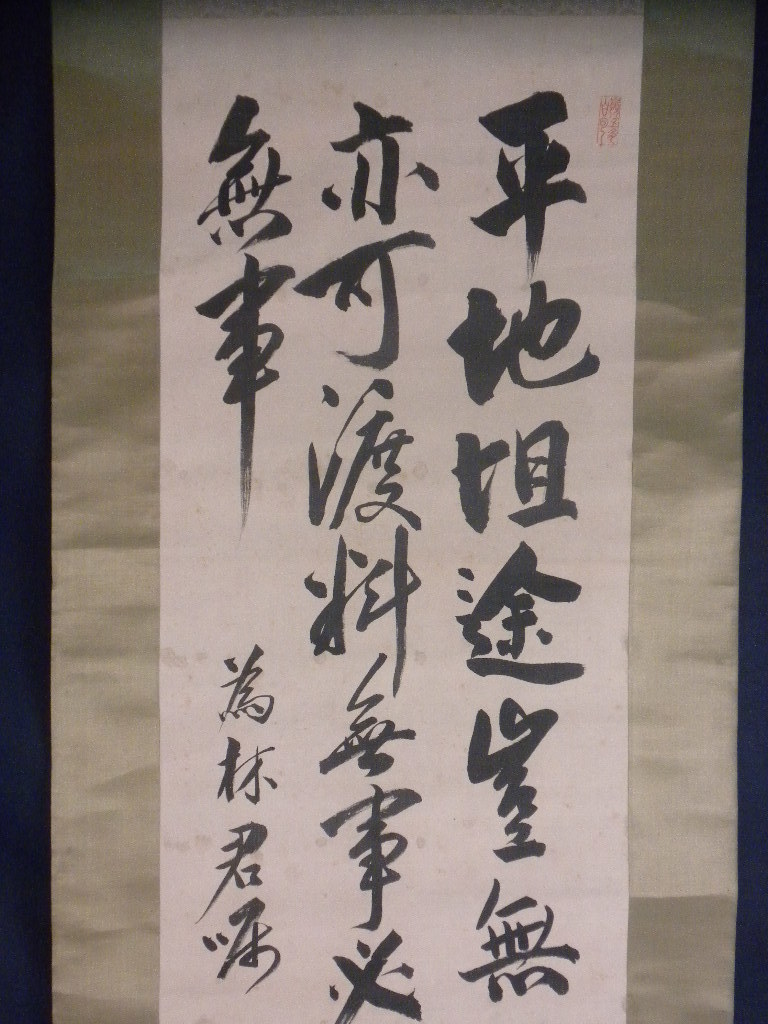 平地坦途豈無
亦可渡料無事必
無事
為林君嘱